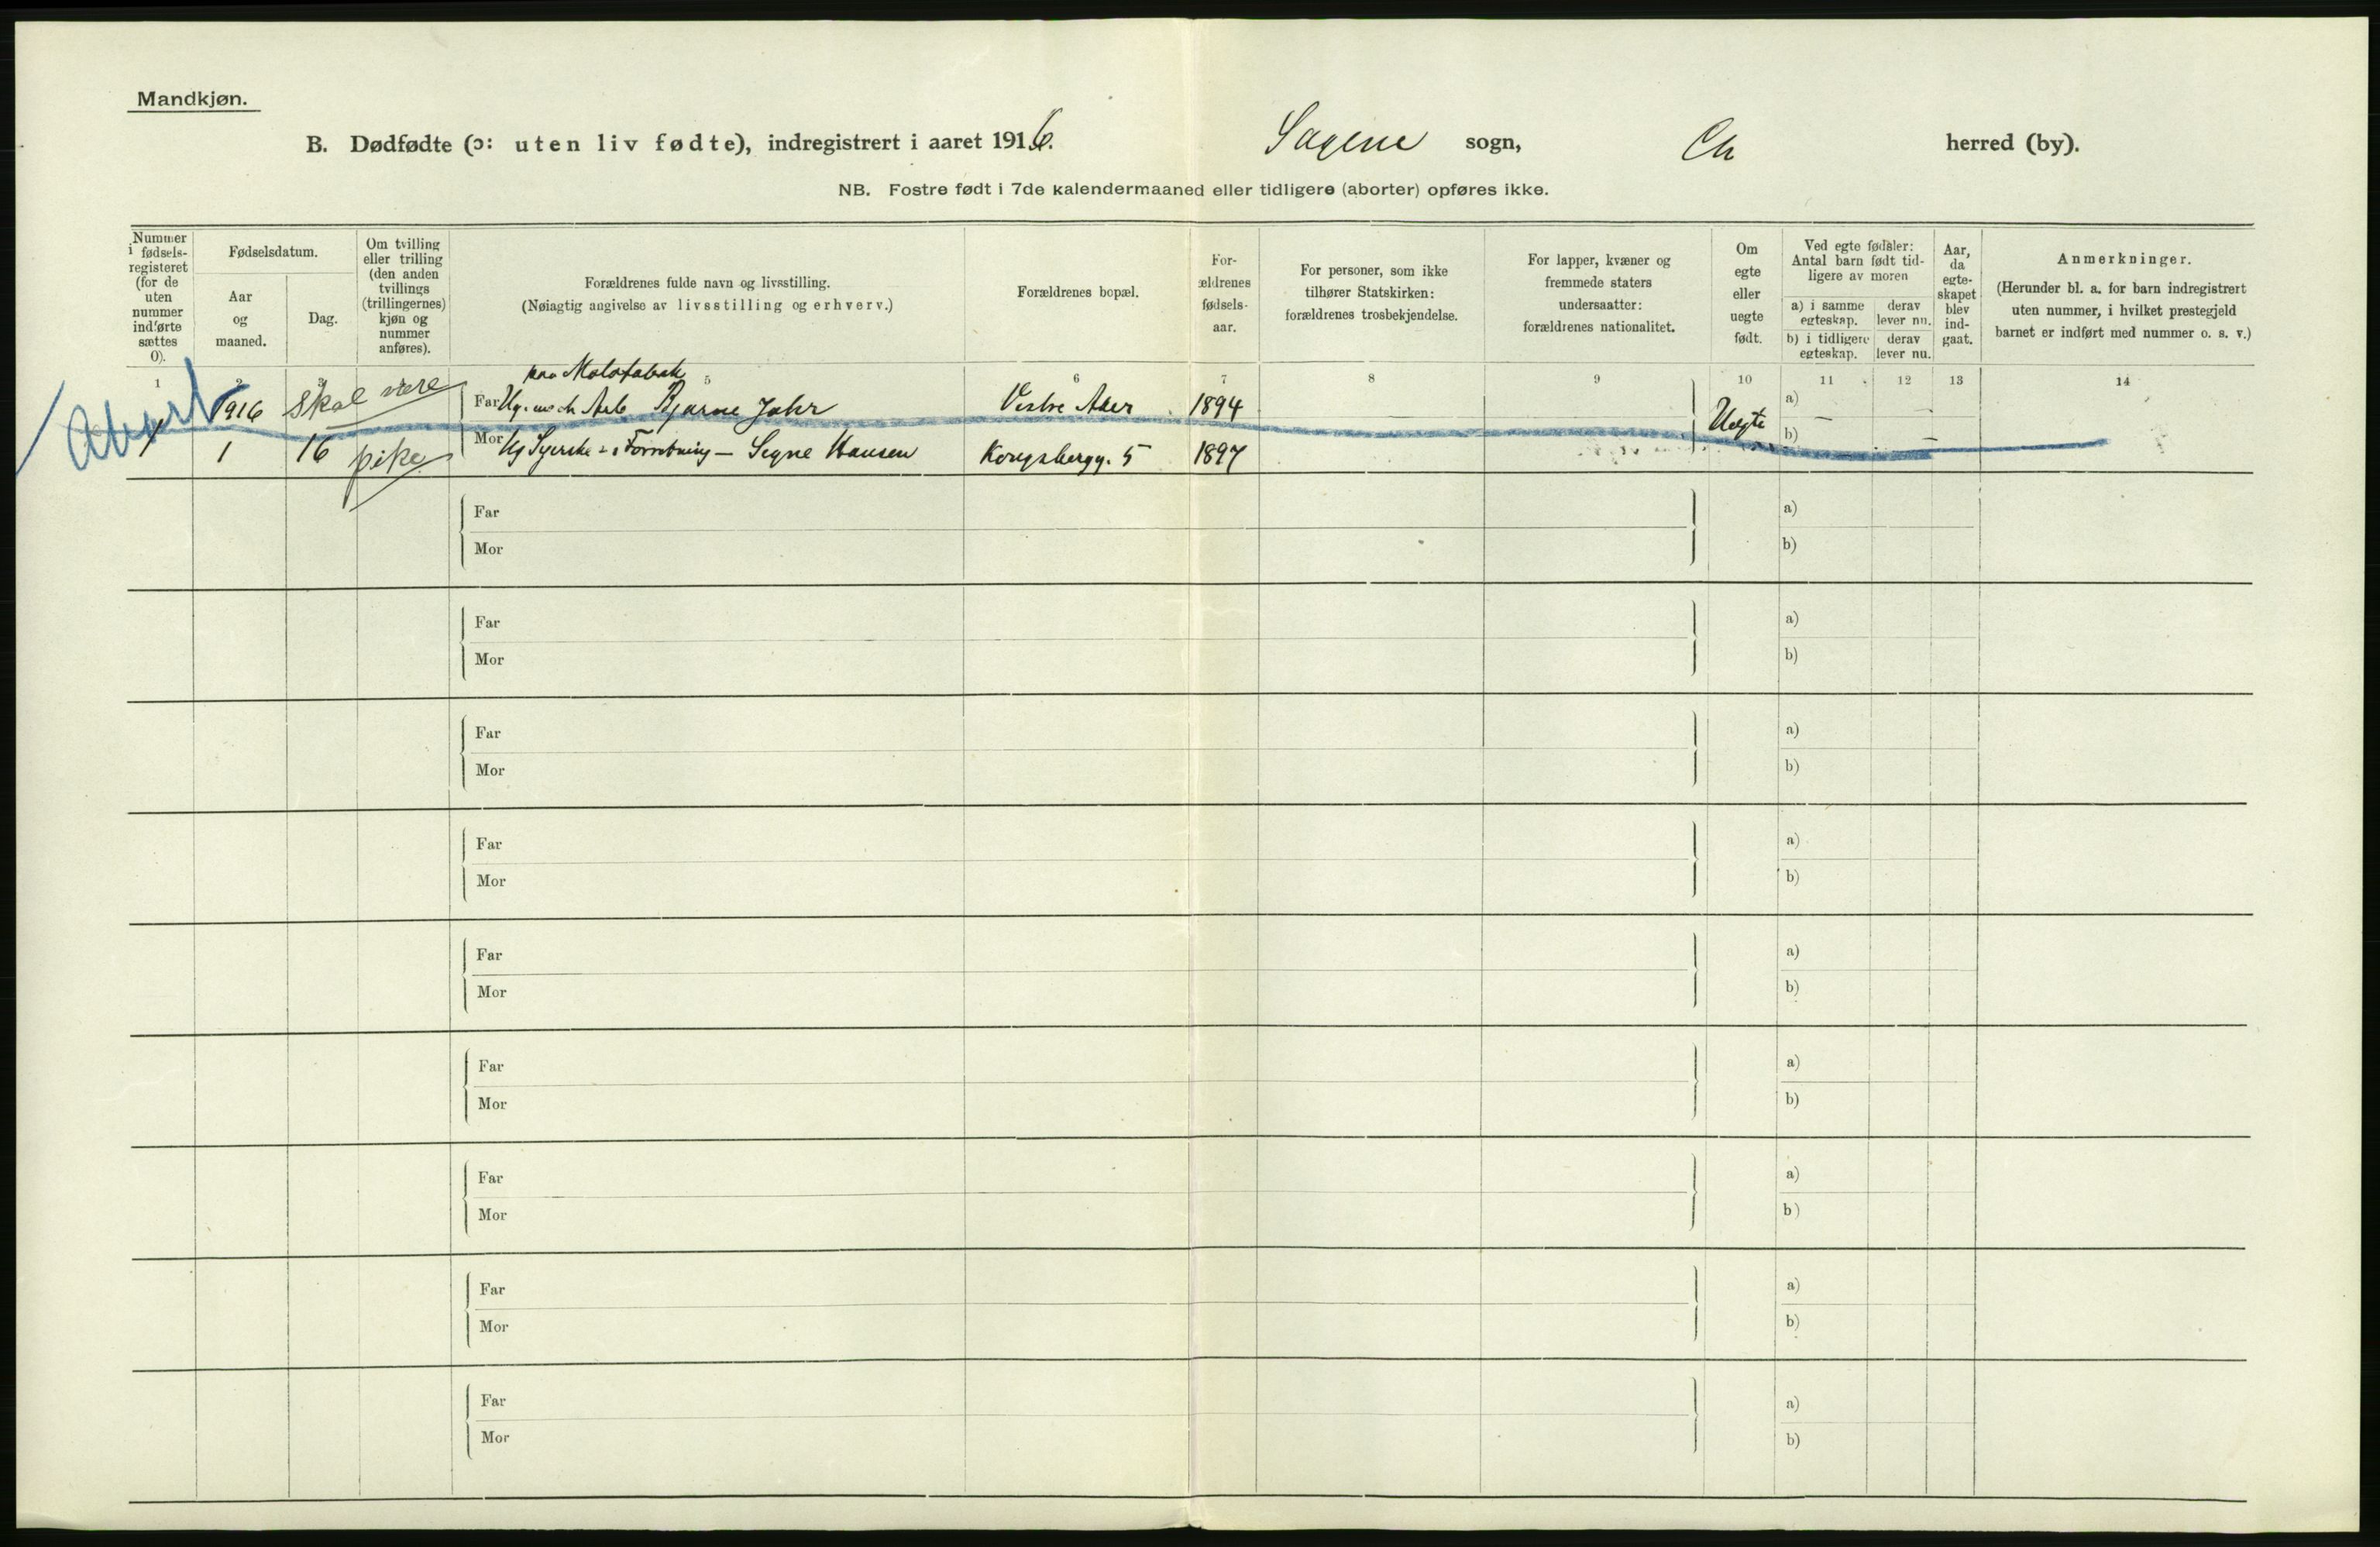 Mandkjøn.
B. Dødfødte (ɔ: uten liv fødte), indregistrert i aaret 1916. Sagene sogn, Ch herred (by).
NB. Fostre født i 7de kalendermaaned eller tidligere (aborter) opføres ikke.
Nummer
i fødsels-
registeret
(for de
uten
nummer
indførte
sættes
0).
Fødselsdatum.
Aar
og
maaned.
Dag.
Om tvilling
eller trilling
(den anden
tvillings
(trillingernes)
kjøn og
nummer
anføres).
Forældrenes fulde navn og livsstilling.
(Nøiagtig angivelse av livsstilling og erhverv.)
Forældrenes bopæl.
For-
ældrenes
fødsels-
aar.
For personer, som ikke
tilhører Statskirken:
forældrenes trosbekjendelse.
For lapper, kvæner og
fremmede staters
undersaatter:
forældrenes nationalitet.
Om
egte
eller
uegte
født.
Ved egte fødsler:
Antal barn født tid-
ligere av moren
a) i samme
egteskap.
derav
lever nu.
b) i tidligere
egteskap.
derav
lever nu.
Aar,
da
egte-
skapet
blev
ind-
gaat.
Anmerkninger.
(Herunder bl. a. for barn indregistrert
uten nummer, i hvilket prestegjeld
barnet er indført med nummer o. s. v.)
1 2 3 5 6 7 8 9 10 11 12 13 14
Abort
skal være
pike
1916
1 16
Far Arb. Bjarne Jahr Vestre Aker 1894 a) —
Uegte
Mor Ug Syerske Signe Hansen Kongsbergg. 5 1897 b) —
Far a)
Mor b)
Far a)
Mor b)
Far a)
Mor b)
Far a)
Mor b)
Far a)
Mor b)
Far a)
Mor b)
Far a)
Mor b)
Far a)
Mor b)
Far a)
Mor b)